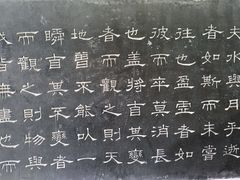 夫水與月乎逝
者如斯而未嘗
往也盈虛者如
彼而卒莫消長
也蓋將自其變
者而觀之則天
地曾不能以一
瞬自其不變者
而觀之則物與
我皆無盡也而